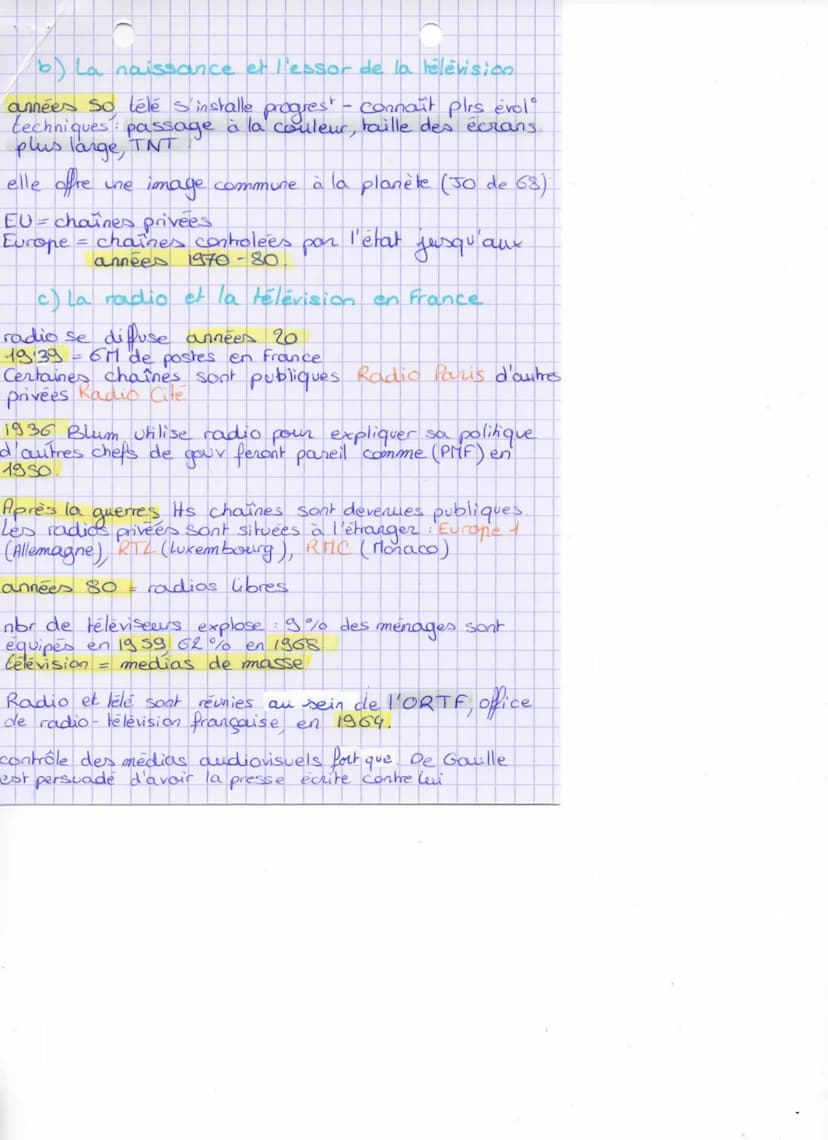 b) La naissance et l'essor de la télévision
années 50 télé s'installe progrest - connaît plrs évol°
techniques : passage à la couleur, taille des écrans
plus large, TNT
elle offre une image commune à la planète (JO de 68)
EU = chaînes privées
Europe = chaînes controlées par l'état jusqu'aux
années 1970 - 80.
c) La radio et la télévision en France
radio se diffuse années 20
1939 = 6M de postes en France
Certaines chaînes sont publiques Radio Paris d'autres
privées Radio Cité
1936 Blum utilise radio pour expliquer sa politique
d'autres chefs de gouv feront pareil comme (PMF) en
1950.
Après la guerres tts chaînes sont devenues publiques.
Les radios privées sont situées à l'étranger : Europe 1
(Allemagne), RTL (Luxembourg), RMC (Monaco)
années 80 = radios libres
nbr de téléviseurs explose : 9% des ménages sont
équipés en 1959 62% en 1968
télévision = medias de masse
Radio et télé sont réunies au sein de l'ORTF, office
de radio-télévision française, en 1964.
contrôle des médias audiovisuels fort que De Gaulle
est persuadé d'avoir la presse écrite contre lui